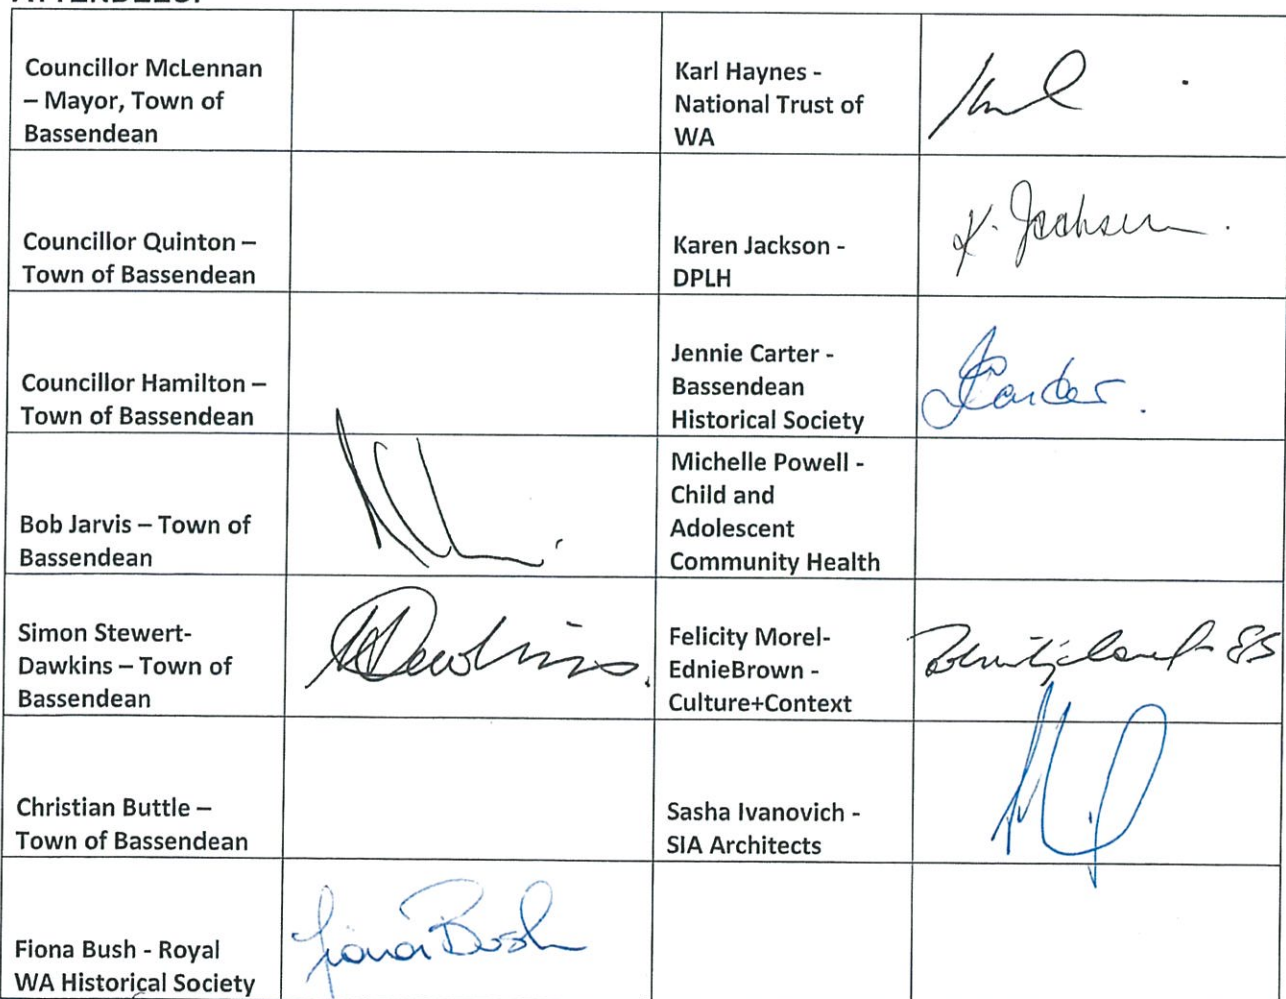 ATTENDEES:
Councillor McLennan
– Mayor, Town of
Bassendean
Karl Haynes -
National Trust of
WA
Councillor Quinton –
Town of Bassendean
Karen Jackson -
DPLH
K. Jackson.
Councillor Hamilton –
Town of Bassendean
Jennie Carter -
Bassendean
Historical Society
JCarter.
Bob Jarvis – Town of
Bassendean
Michelle Powell -
Child and
Adolescent
Community Health
Simon Stewert-
Dawkins – Town of
Bassendean
Dawkins.
Felicity Morel-
EdnieBrown -
Culture+Context
Christian Buttle –
Town of Bassendean
Sasha Ivanovich -
SIA Architects
Fiona Bush - Royal
WA Historical Society
Fiona Bush